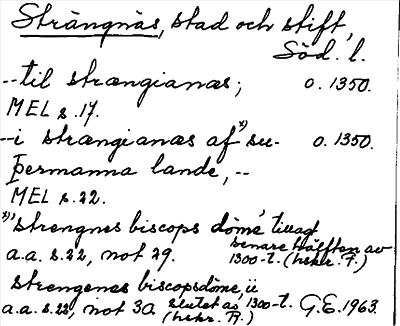 Strängnäs, stad och stift,
Söd. l.
--til strængianæs; o. 1350.
MEL s. 17.
--i strængianæs af x) su- o. 1350.
þermanna lande, --
MEL s. 22.
x) 'strengnes biscops döme' tillagt
a.a. s. 22, not 29. senare hälften av
1300-t. (hskr. F.)
strengenes biscopsdöme ii
a.a. s. 22, not 30. slutet av 1300-t. G.E. 1963.